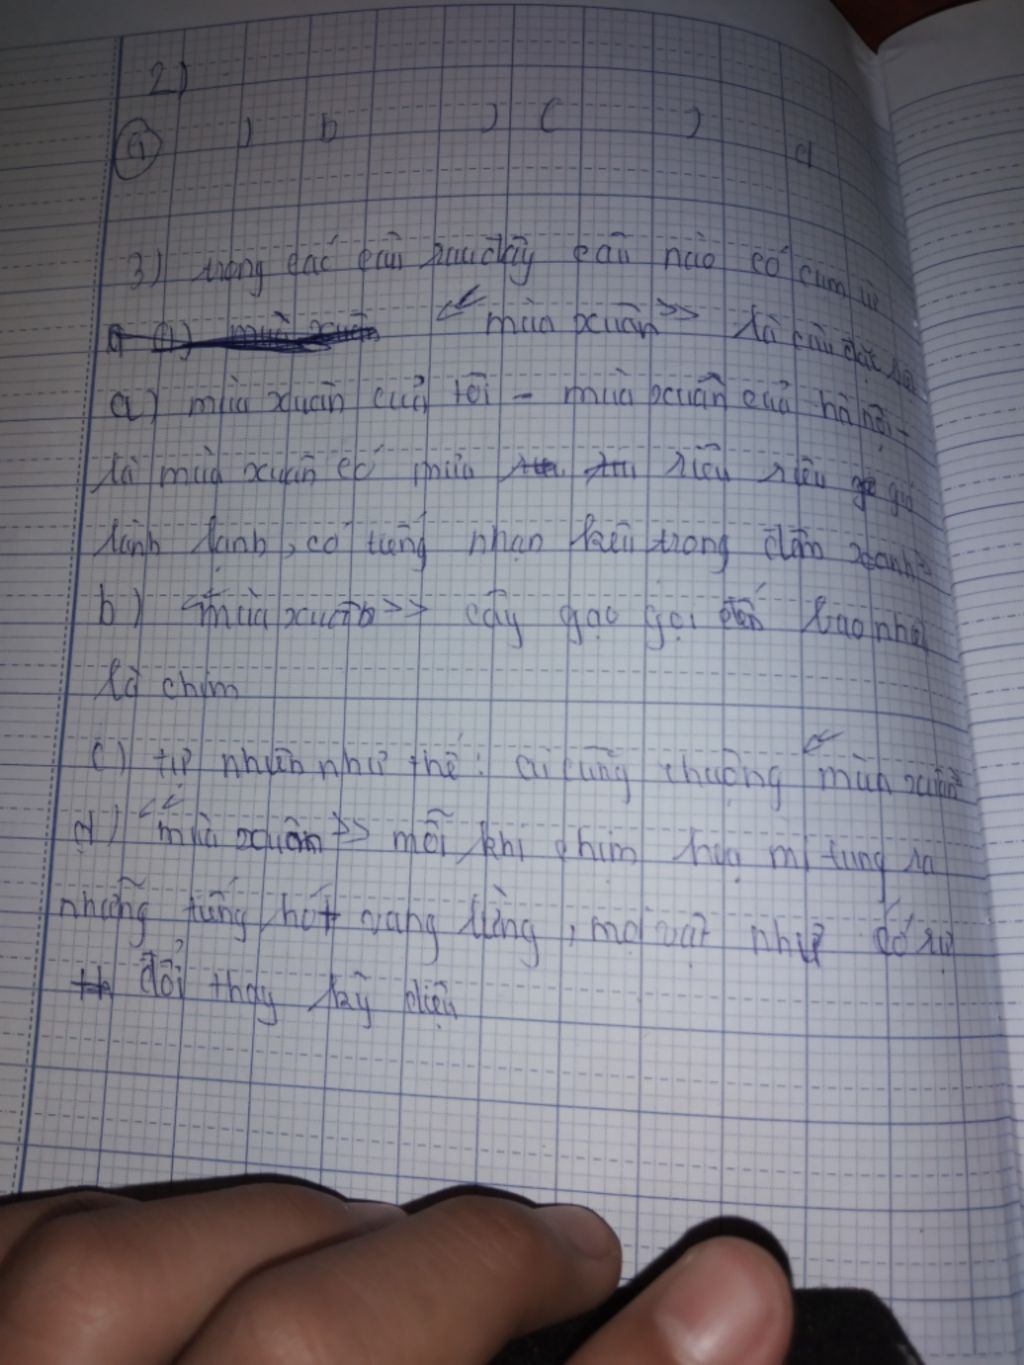 2)
a ) b ) ( ) d
3) trong các câu sau đây câu nào có cụm từ
<< mùa xuân >> là câu đặc
a) mùa xuân của tôi - mùa xuân của hà nội -
là mùa xuân có mưa riêu riêu gió
lành lạnh, có tiếng nhạn kêu trong đêm xanh >>
b) << mùa xuân >> cây gạo gọi đến bao nhiê
là chim
c) tự nhiên như thế : ai cũng chuộng << mùa xuân >>
d) << mùa xuân >> mỗi khi chim hoạ mi tung ra
những tiếng hót vang lừng , mọi vật như có sự
đổi thay kỳ diệu